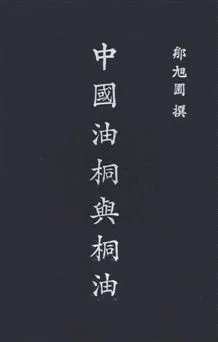 鄒旭圃 撰
中國油桐與桐油